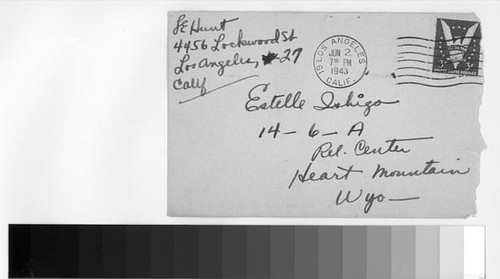 SE Hunt
4456 Lockwood St
Los Angeles, 27
Calif
LOS ANGELES
19
JUN 2
7 30 PM
1943
CALIF.
3¢
UNITED STATES POSTAGE
Estelle Ishigo
14 - 6 - A
Rel. Center
Heart Mountain
Wyo -